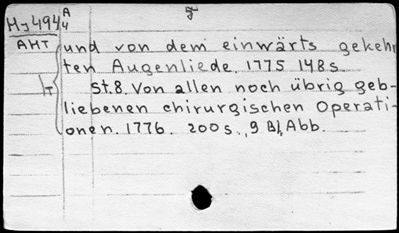 Hy 494 A/4
F
AHT
und von dem einwärts gekehr
ten Augenliede. 1775 148 s.
St. 8. Von allen noch übrig geb-
liebenen chirurgischen Operati-
onen. 1776. 200 s., 9 Bl, Abb.